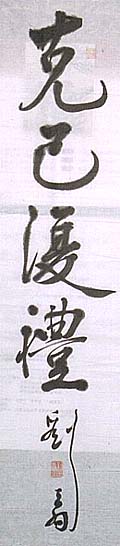 克己復禮